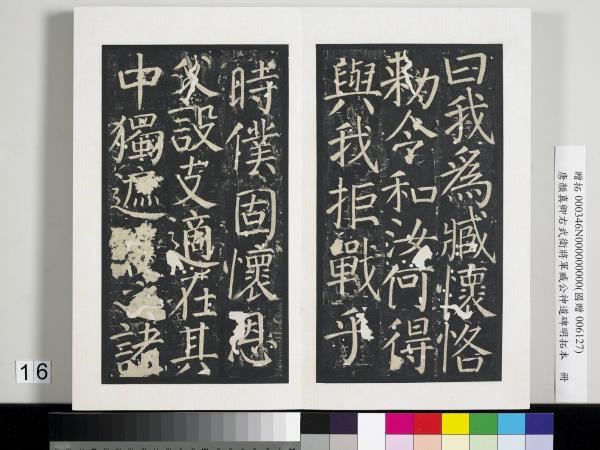 曰我為臧懷恪
勑令和汝何得
與我拒戰乎
時僕固懷恩
父設支適在其
中獨遮諸
贈拓 000346N000000000(國贈 006127)
唐顏真卿右武衛將軍臧公神道碑明拓本 冊
16